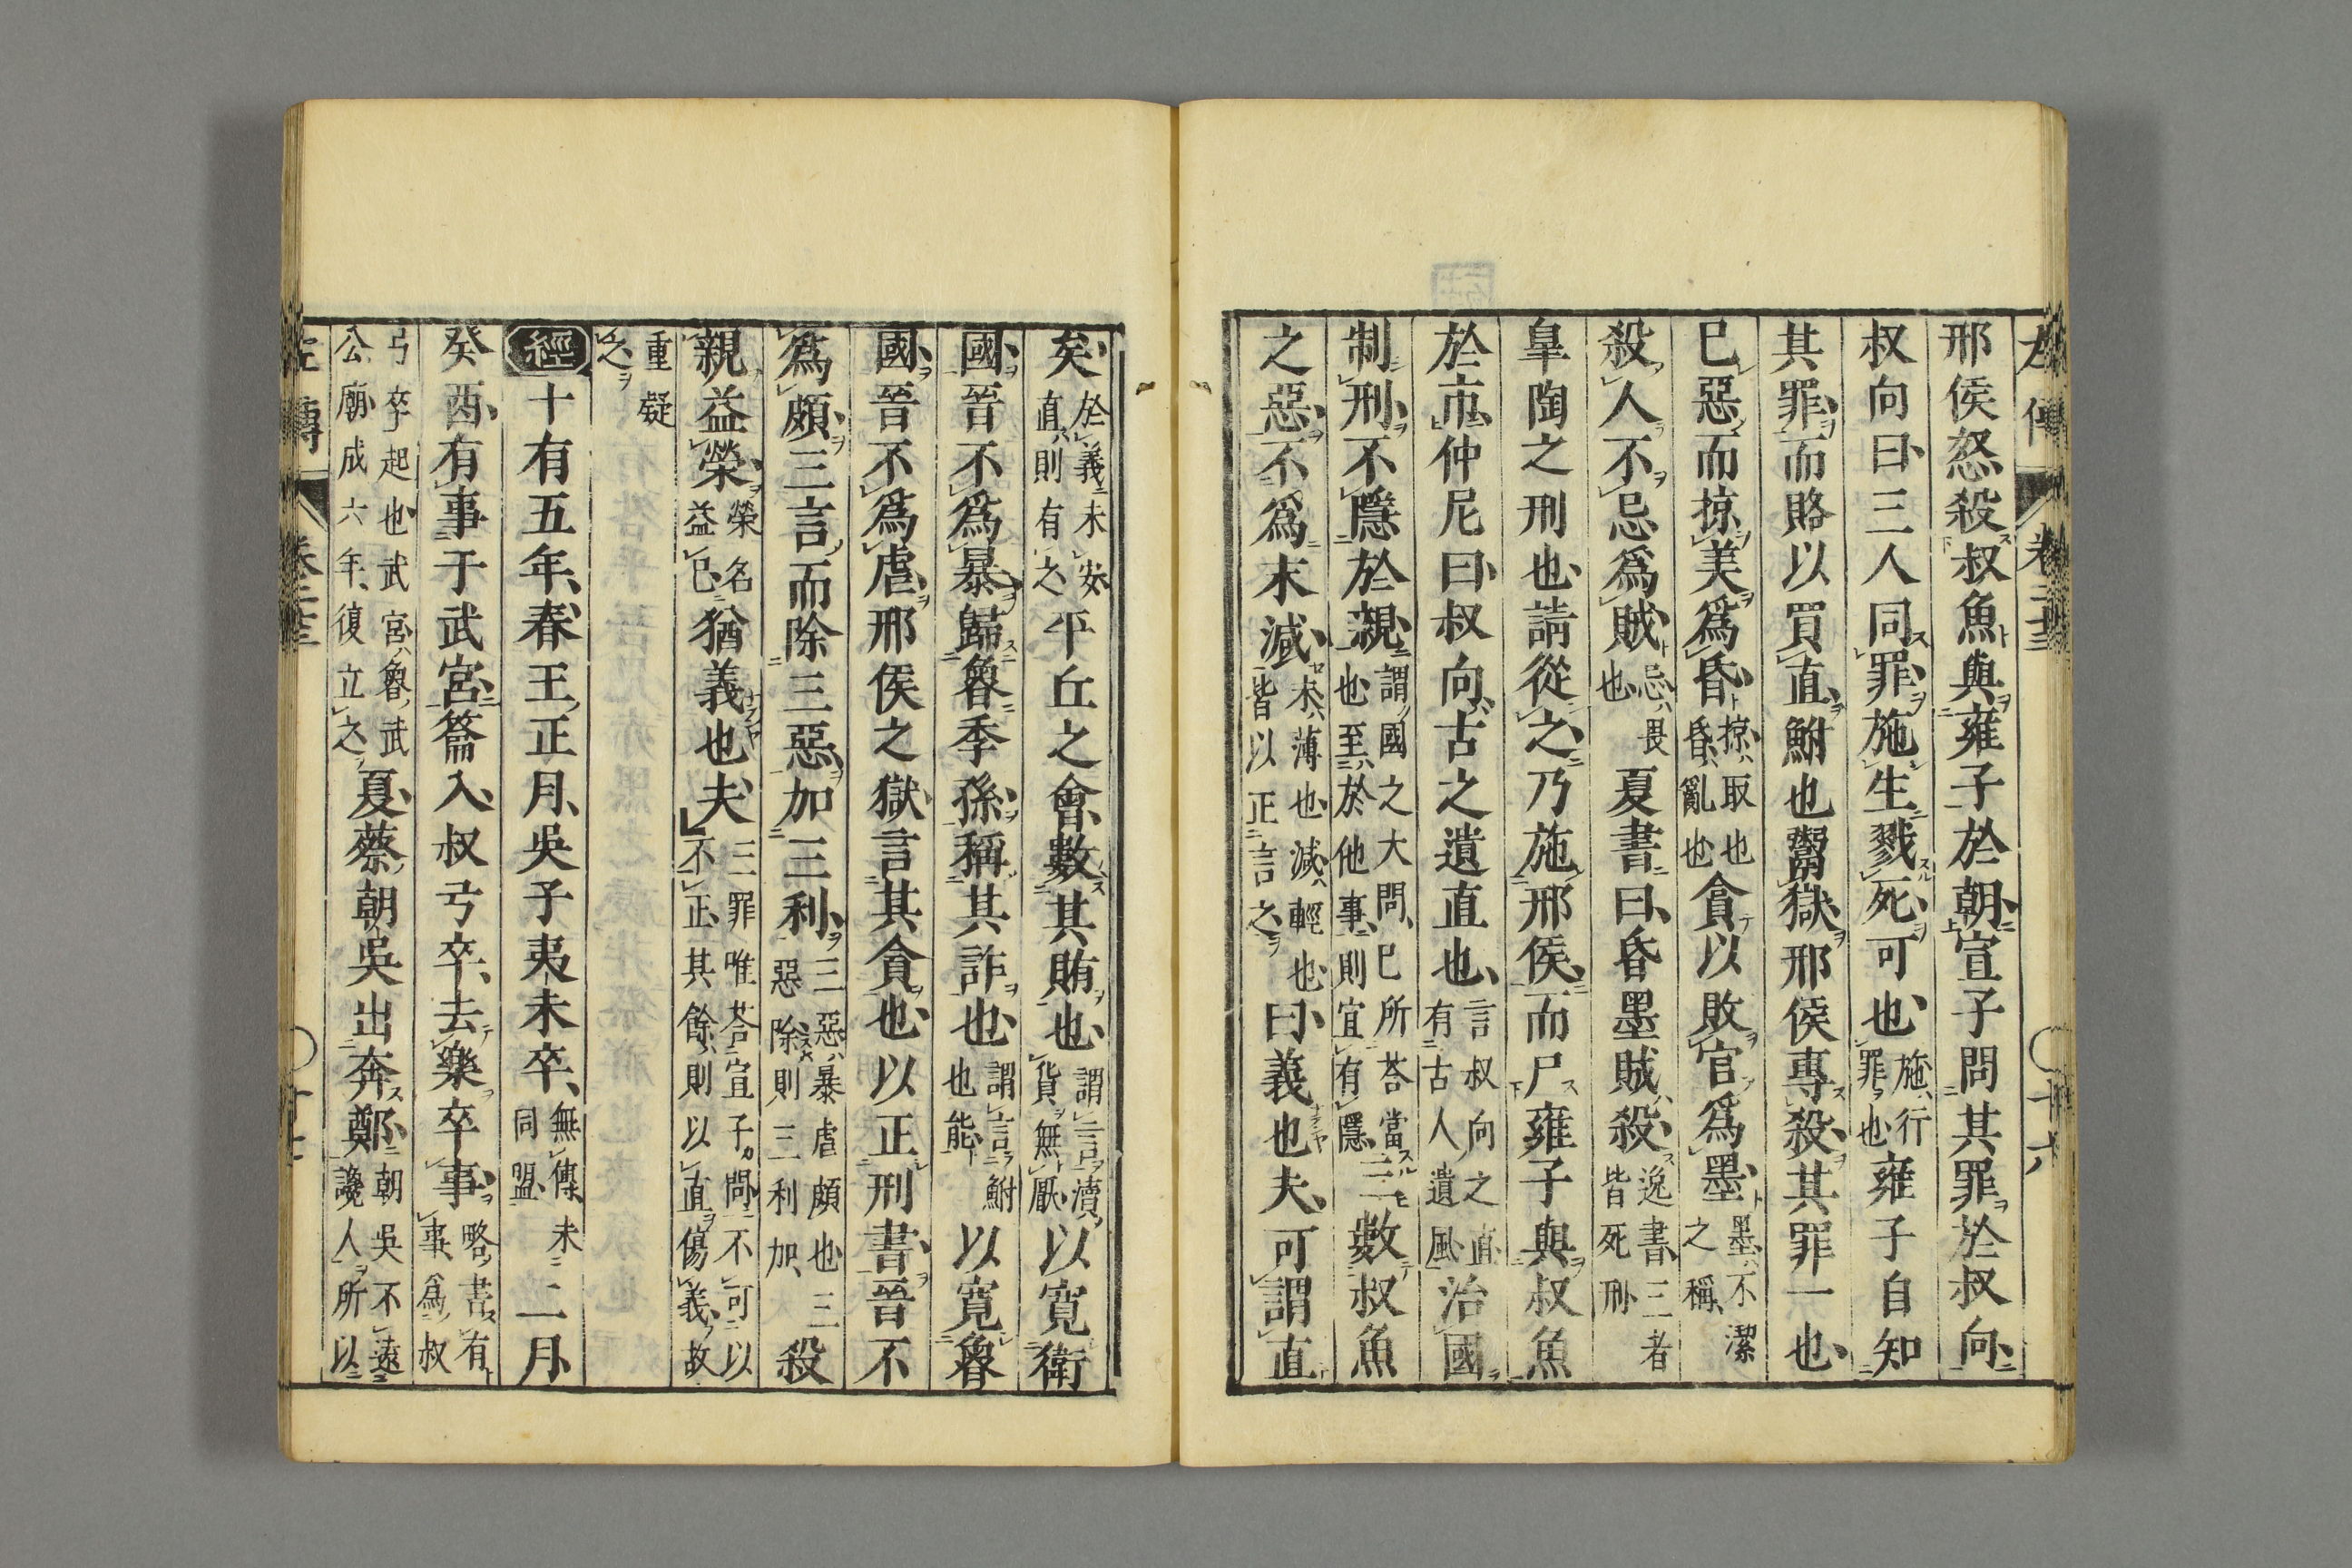 左傳 卷二十三 十六
邢侯怒殺叔魚與雍子於朝宣子問其罪於叔向
叔向曰三人同罪施生戮死可也施行罪也雍子自知
其罪而賂以買直鮒也鬻獄邢侯專殺其罪一也
已惡而掠美爲昏掠取也昏亂也貪以敗官爲墨墨不潔之稱
殺人不忌爲賊忌畏也夏書曰昏墨賊殺逸書三者皆死刑
皐陶之刑也請從之乃施邢侯而尸雍子與叔魚
於市仲尼曰叔向古之遺直也言叔向之直有古人遺風治國
制刑不隱於親謂國之大問已所荅當也至於他事則宜有隱三數叔魚
之惡不爲末減末薄也減輕也皆以正言之曰義也夫可謂直
矣於義未安直則有之平丘之會數其賄也謂言瀆貨無厭以寬衛
國晉不爲暴歸魯季孫稱其詐也謂言鮒也能以寬魯
國晉不爲虐邢侯之獄言其貪也以正刑書晉不
爲頗三言而除三惡加三利三惡暴虐頗也三惡除則三利加殺
親益榮榮名益已猶義也夫三罪唯荅宣子問不可以不正其餘則以直傷義故
重疑之
經十有五年春王正月吳子夷末卒無傳未同盟二月
癸酉有事于武宮籥入叔弓卒去樂卒事略書有事爲叔
弓卒起也武宮魯武公廟成六年復立之夏蔡朝吳出奔鄭朝吳不遠讒人所以
左傳 卷二十三 十七